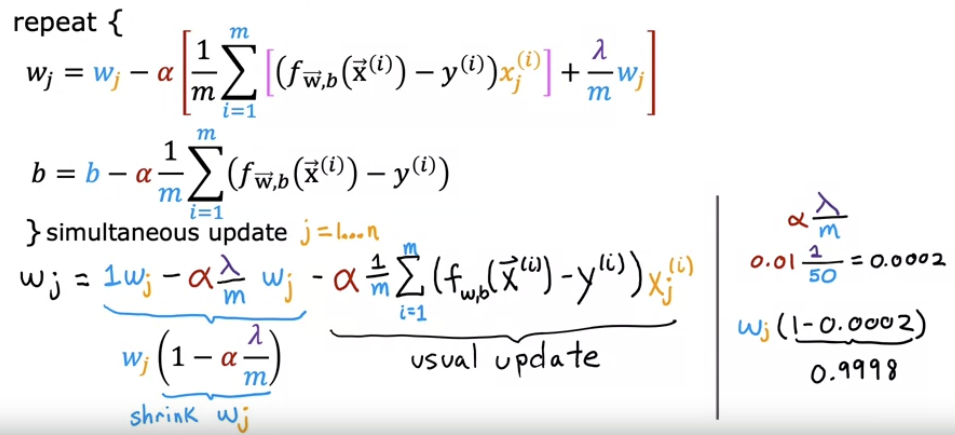 repeat {
w_j = w_j − α [ 1/m ∑_{i=1}^{m} [(f_{w⃗,b}(x⃗^{(i)}) − y^{(i)})x_j^{(i)}] + λ/m w_j ]
b = b − α 1/m ∑_{i=1}^{m} (f_{w⃗,b}(x⃗^{(i)}) − y^{(i)})
} simultaneous update j = 1...n
w_j = 1w_j − α λ/m w_j − α 1/m ∑_{i=1}^{m} (f_{w,b}(x⃗^{(i)}) − y^{(i)}) x_j^{(i)}
w_j (1 − α λ/m)
usual update
shrink w_j
α λ/m
0.01 1/50 = 0.0002
w_j (1 − 0.0002)
0.9998